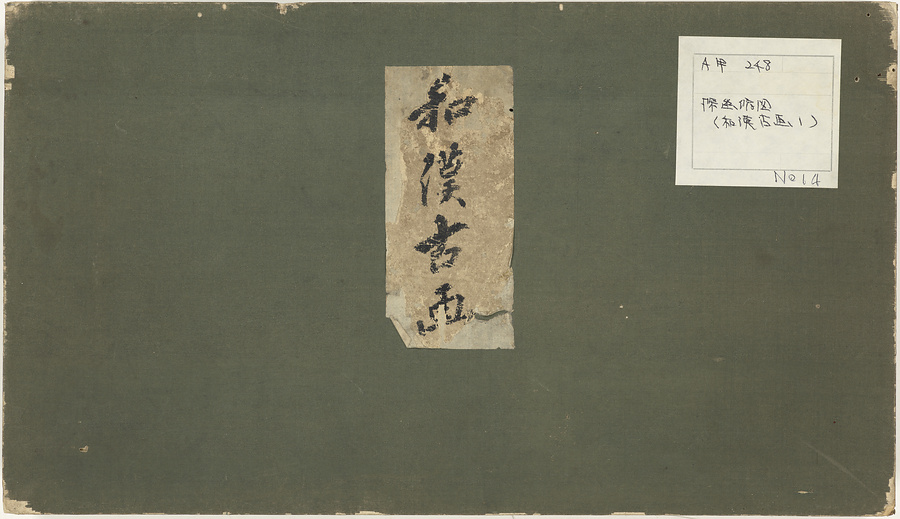 和漢古画
A甲 248
探幽縮図
(和漢古画 1)
No 14